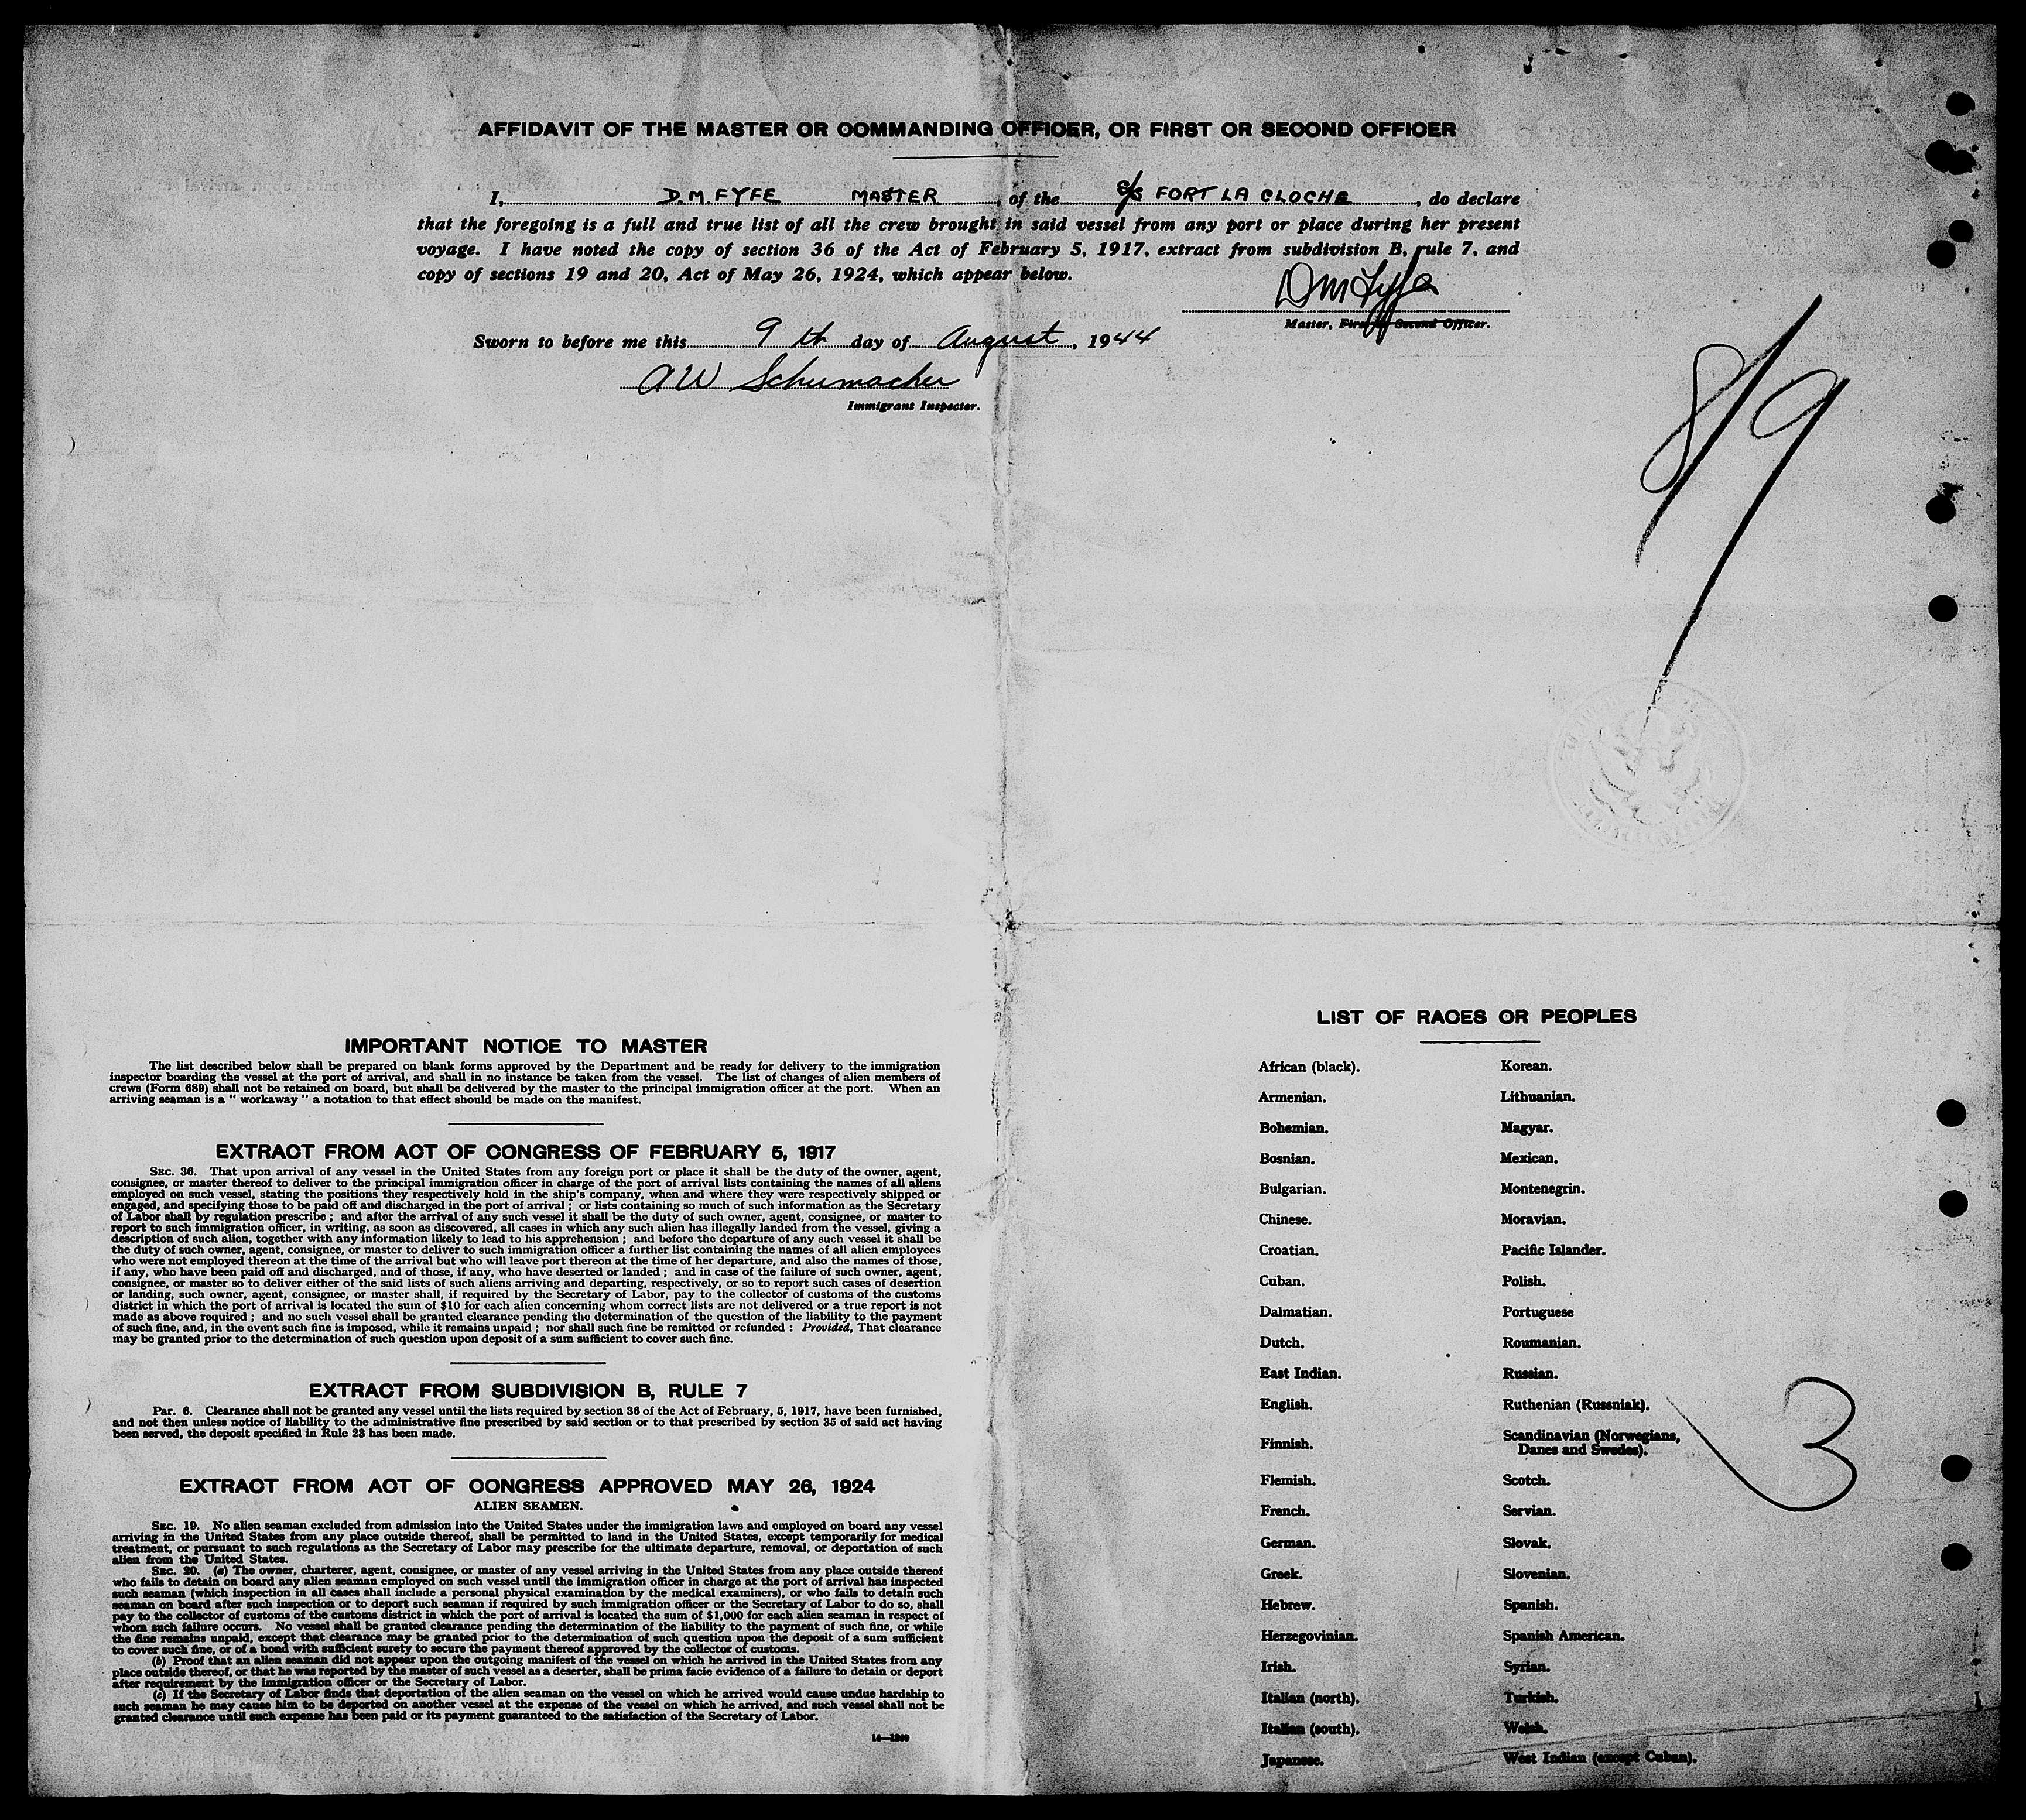 AFFIDAVIT OF THE MASTER OR COMMANDING OFFICER, OR FIRST OR SECOND OFFICER
I, D. M. FYFE MASTER, of the S/S FORT LA CLOCHE, do declare
that the foregoing is a full and true list of all the crew brought in said vessel from any port or place during her present
voyage. I have noted the copy of section 36 of the Act of February 5, 1917, extract from subdivision B, rule 7, and
copy of sections 19 and 20, Act of May 26, 1924, which appear below.
DM Fyfe
Master, First or Second Officer.
Sworn to before me this 9th day of August, 1944
AW Schumacher
Immigrant Inspector.
8/9
IMPORTANT NOTICE TO MASTER
The list described below shall be prepared on blank forms approved by the Department and be ready for delivery to the immigration
inspector boarding the vessel at the port of arrival, and shall in no instance be taken from the vessel. The list of changes of alien members of
crews (Form 689) shall not be retained on board, but shall be delivered by the master to the principal immigration officer at the port. When an
arriving seaman is a " workaway " a notation to that effect should be made on the manifest.
EXTRACT FROM ACT OF CONGRESS OF FEBRUARY 5, 1917
SEC. 36. That upon arrival of any vessel in the United States from any foreign port or place it shall be the duty of the owner, agent,
consignee, or master thereof to deliver to the principal immigration officer in charge of the port of arrival lists containing the names of all aliens
employed on such vessel, stating the positions they respectively hold in the ship's company, when and where they were respectively shipped or
engaged, and specifying those to be paid off and discharged in the port of arrival ; or lists containing so much of such information as the Secretary
of Labor shall by regulation prescribe ; and after the arrival of any such vessel it shall be the duty of such owner, agent, consignee, or master to
report to such immigration officer, in writing, as soon as discovered, all cases in which any such alien has illegally landed from the vessel, giving a
description of such alien, together with any information likely to lead to his apprehension ; and before the departure of any such vessel it shall be
the duty of such owner, agent, consignee, or master to deliver to such immigration officer a further list containing the names of all alien employees
who were not employed thereon at the time of the arrival but who will leave port thereon at the time of her departure, and also the names of those,
if any, who have been paid off and discharged, and of those, if any, who have deserted or landed ; and in case of the failure of such owner, agent,
consignee, or master so to deliver either of the said lists of such aliens arriving and departing, respectively, or so to report such cases of desertion
or landing, such owner, agent, consignee, or master shall, if required by the Secretary of Labor, pay to the collector of customs of the customs
district in which the port of arrival is located the sum of $10 for each alien concerning whom correct lists are not delivered or a true report is not
made as above required ; and no such vessel shall be granted clearance pending the determination of the question of the liability to the payment
of such fine, and, in the event such fine is imposed, while it remains unpaid ; nor shall such fine be remitted or refunded : Provided, That clearance
may be granted prior to the determination of such question upon deposit of a sum sufficient to cover such fine.
EXTRACT FROM SUBDIVISION B, RULE 7
Par. 6. Clearance shall not be granted any vessel until the lists required by section 36 of the Act of February, 5, 1917, have been furnished,
and not then unless notice of liability to the administrative fine prescribed by said section or to that prescribed by section 35 of said act having
been served, the deposit specified in Rule 23 has been made.
EXTRACT FROM ACT OF CONGRESS APPROVED MAY 26, 1924
ALIEN SEAMEN.
SEC. 19. No alien seaman excluded from admission into the United States under the immigration laws and employed on board any vessel
arriving in the United States from any place outside thereof, shall be permitted to land in the United States, except temporarily for medical
treatment, or pursuant to such regulations as the Secretary of Labor may prescribe for the ultimate departure, removal, or deportation of such
alien from the United States.
SEC. 20. (a) The owner, charterer, agent, consignee, or master of any vessel arriving in the United States from any place outside thereof
who fails to detain on board any alien seaman employed on such vessel until the immigration officer in charge at the port of arrival has inspected
such seaman (which inspection in all cases shall include a personal physical examination by the medical examiners), or who fails to detain such
seaman on board after such inspection or to deport such seaman if required by such immigration officer or the Secretary of Labor to do so, shall
pay to the collector of customs of the customs district in which the port of arrival is located the sum of $1,000 for each alien seaman in respect of
whom such failure occurs. No vessel shall be granted clearance pending the determination of the liability to the payment of such fine, or while
the fine remains unpaid, except that clearance may be granted prior to the determination of such question upon the deposit of a sum sufficient
to cover such fine, or of a bond with sufficient surety to secure the payment thereof approved by the collector of customs.
(b) Proof that an alien seaman did not appear upon the outgoing manifest of the vessel on which he arrived in the United States from any
place outside thereof, or that he was reported by the master of such vessel as a deserter, shall be prima facie evidence of a failure to detain or deport
after requirement by the immigration officer or the Secretary of Labor.
(c) If the Secretary of Labor finds that deportation of the alien seaman on the vessel on which he arrived would cause undue hardship to
such seaman he may cause him to be deported on another vessel at the expense of the vessel on which he arrived, and such vessel shall not be
granted clearance until such expense has been paid or its payment guaranteed to the satisfaction of the Secretary of Labor.
LIST OF RACES OR PEOPLES
African (black). Korean.
Armenian. Lithuanian.
Bohemian. Magyar.
Bosnian. Mexican.
Bulgarian. Montenegrin.
Chinese. Moravian.
Croatian. Pacific Islander.
Cuban. Polish.
Dalmatian. Portuguese
Dutch. Roumanian.
East Indian. Russian.
English. Ruthenian (Russniak).
Finnish. Scandinavian (Norwegians,
Danes and Swedes).
Flemish. Scotch.
French. Servian.
German. Slovak.
Greek. Slovenian.
Hebrew. Spanish.
Herzegovinian. Spanish American.
Irish. Syrian.
Italian (north). Turkish.
Italian (south). Welsh.
Japanese. West Indian (except Cuban).
3